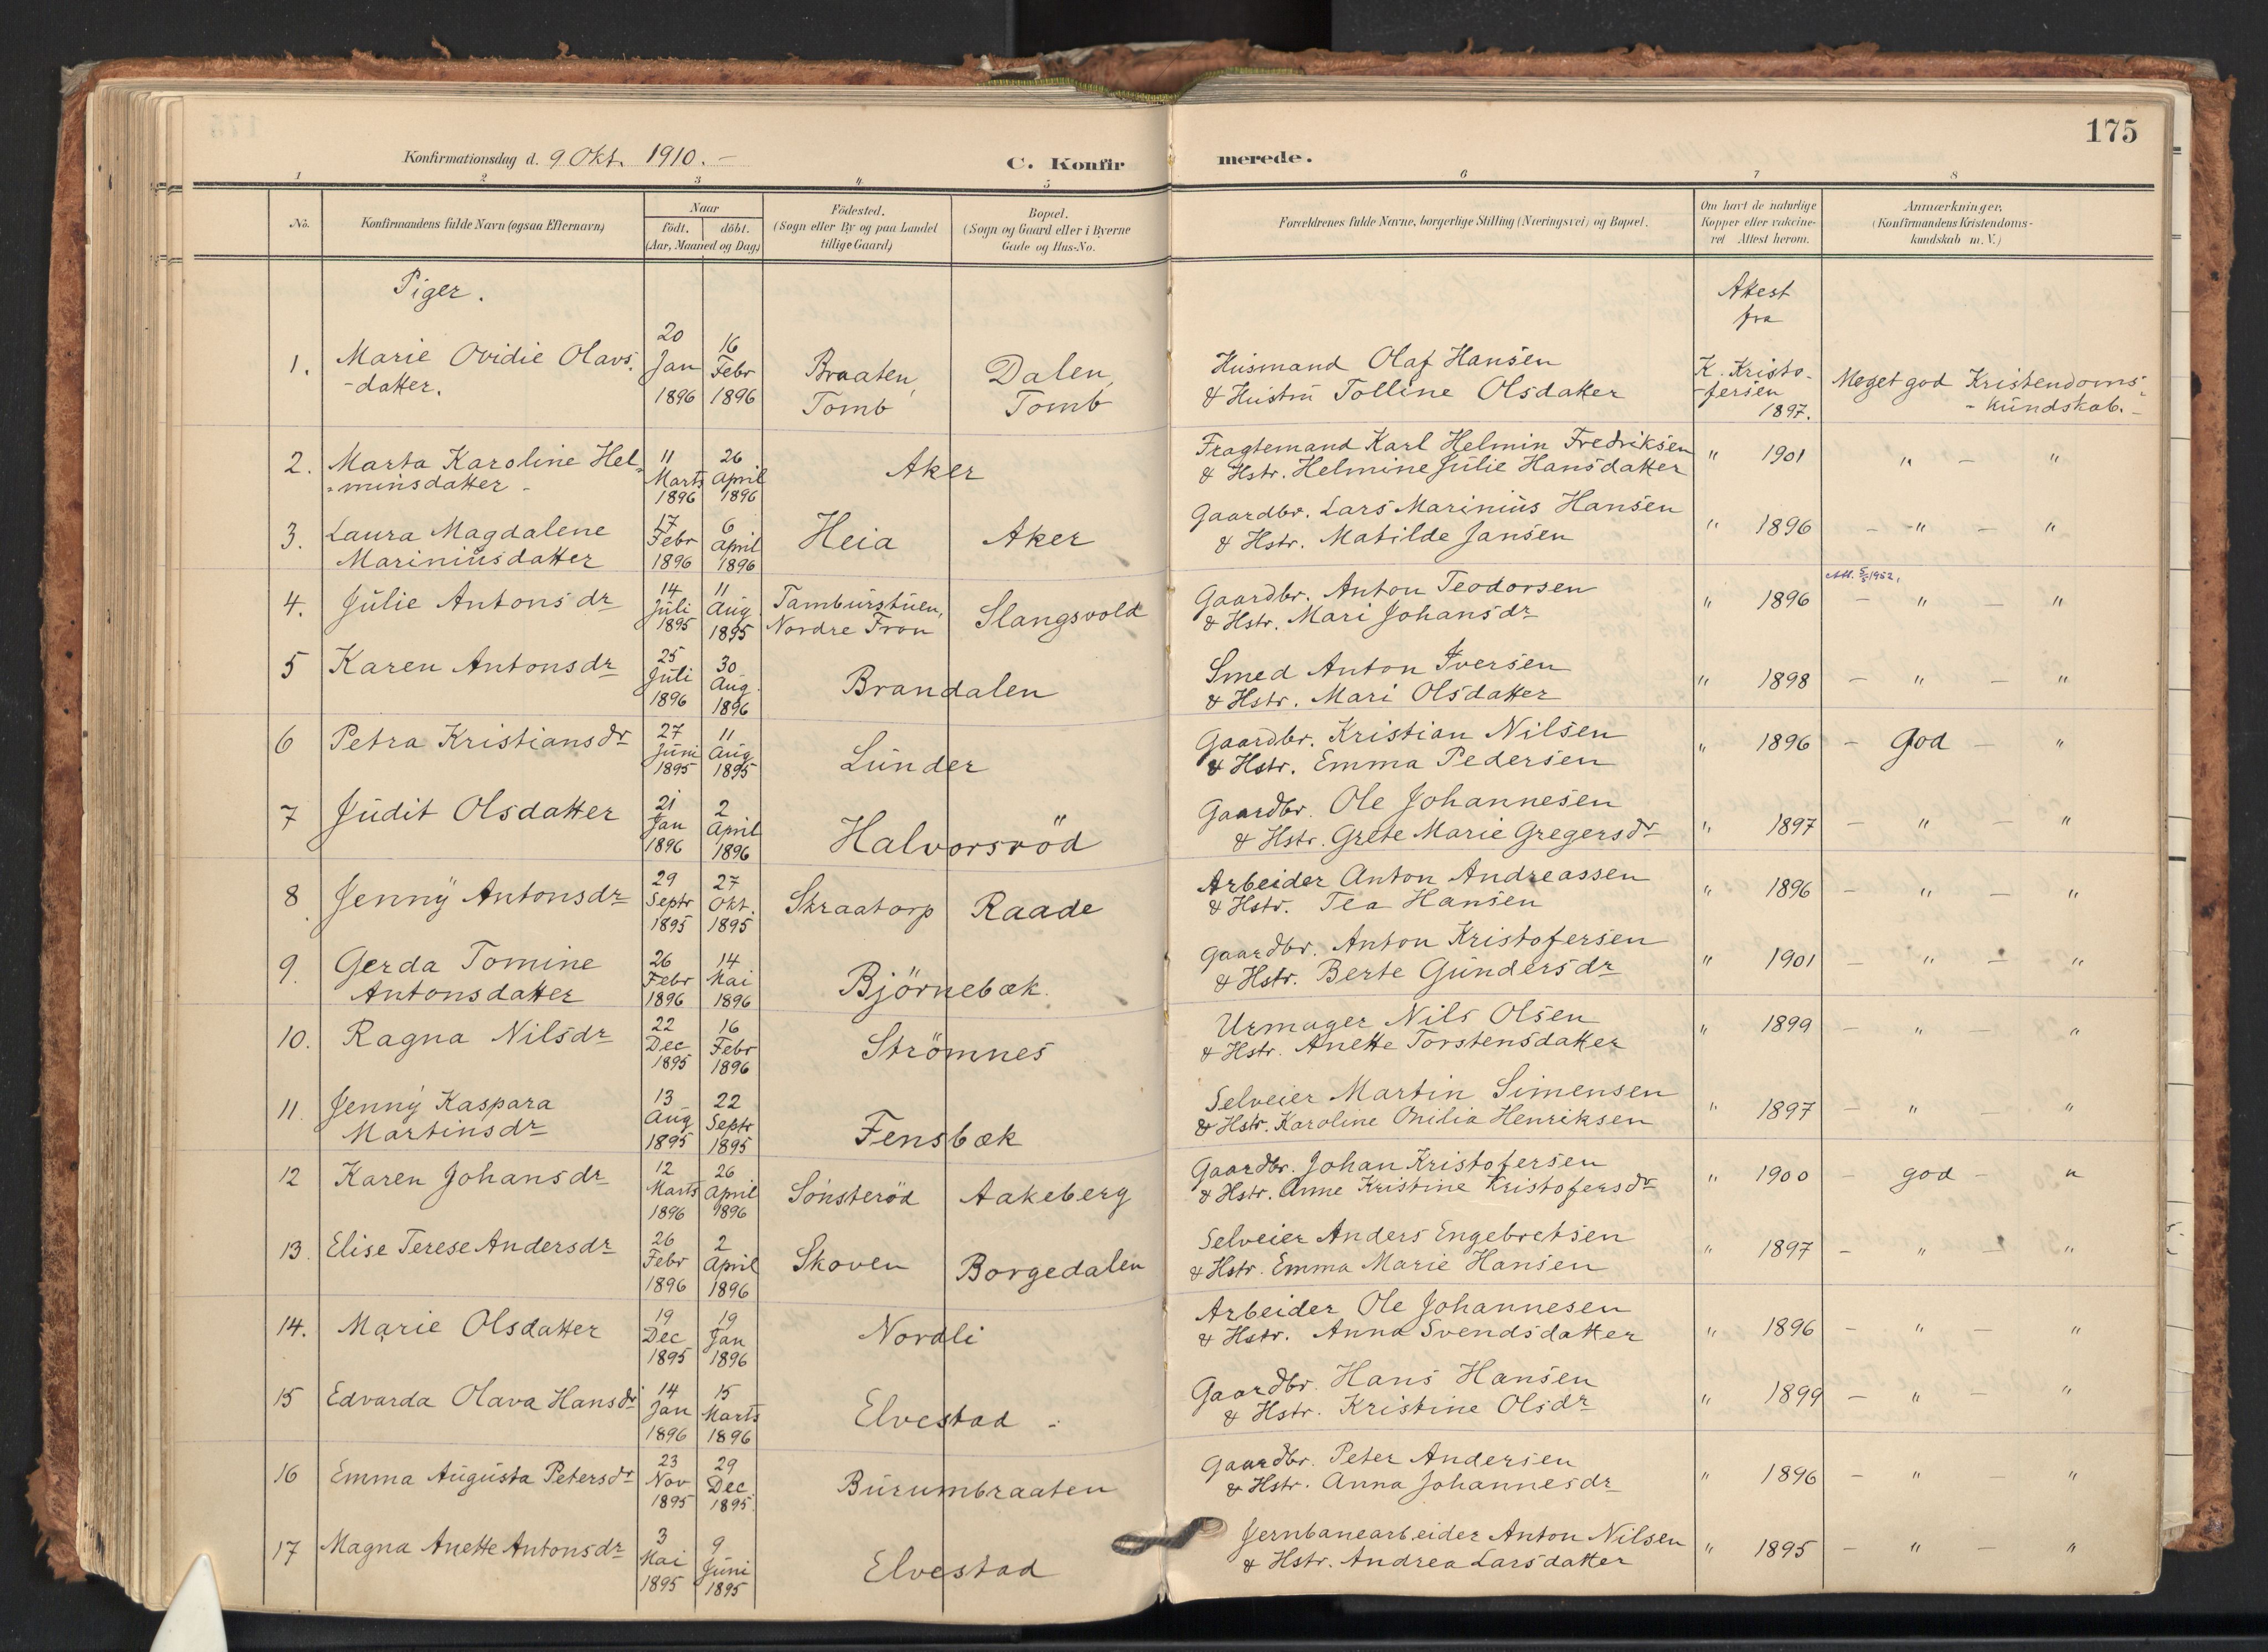 175
Konfirmationsdag d. 9 Okt. 1910. –
C. Konfirmerede.
1 2 3 4 5 6 7 8
No.
Konfirmandens fulde Navn (ogsaa Efternavn)
Naar
födt. döbt.
(Aar, Maaned og Dag)
Födested.
(Sogn eller By og paa Landet
tillige Gaard)
Bopæl.
(Sogn og Gaard eller i Byerne
Gade og Hus-No.
Forældrenes fulde Navne, borgerlige Stilling (Næringsvei) og Bopæl.
Om havt de naturlige
Kopper eller vakcine-
ret Attest herom.
Anmærkninger.
(Konfirmandens Kristendoms-
kundskab m. V.)
Piger.
Attest
fra
1. Marie Ovidie Olavs-
-datter.
20 Jan 1896
16 Febr 1896
Braaten, Tomb
Dalen, Tomb
Husmand Olaf Hansen
& Hustru Tolline Olsdatter
K. Kristo-
-fersen
1897.
Meget god Kristendoms-
-kundskab. –
2. Marta Karoline Hel-
-minsdatter –
11 Marts 1896
26 April 1896
Aker
Fragtemand Karl Helmin Fredriksen
& Hstr. Helmine Julie Hansdatter
" 1901
" – "
3. Laura Magdalene
Mariniusdatter
17 Febr 1896
6 April 1896
Heia
Aker
Gaardbr. Lars Marinius Hansen
& Hstr. Matilde Jansen
" 1896
– " – "
4. Julie Antonsdr
14 Juli 1895
11 Aug 1895
Tamburstuen,
Nordre Fron
Slangsvold
Gaardbr. Anton Teodorsen
& Hstr. Mari Johansdr
" 1896
– " – "
5 Karen Antonsdr
25 Juli 1896
30 Aug. 1896
Brandalen
Smed Anton Iversen
& Hstr. Mari Olsdatter
" 1898
– " – "
6 Petra Kristiansdr
27 Juni 1895
11 Aug 1895
Lunder
Gaardbr. Kristian Nilsen
& Hstr. Emma Pedersen
" 1896
– God – "
7 Judit Olsdatter
21 Jan 1896
2 April 1896
Halvorsröd
Gaardbr. Ole Johannesen
& Hstr. Grete Marie Gregersdr
" 1897
– " – "
8 Jenny Antonsdr
29 Septr 1895
27 Okt. 1895
Skraatorp
Raade
Arbeider Anton Andreassen
& Hstr. Tea Hansen
" 1896
– " – "
9. Gerda Tomine
Antonsdatter
26 Febr 1896
14 Mai 1896
Björnebæk
Gaardbr. Anton Kristofersen
& Hstr. Berte Gundersdr
" 1901
– " – "
10. Ragna Nilsdr
22 Dec 1895
16 Febr 1896
Strömnes
Urmager Nils Olsen
& Hstr. Anette Torstensdatter
" 1899
– " – "
11. Jenny Kaspara
Martinsdr
13 Aug 1895
22 Septr 1895
Fensbæk
Selveier Martin Simensen
& Hstr. Karoline Onilia Henriksen
" 1897
– " – "
12 Karen Johansdr
12 Marts 1896
26 April 1896
Sönsteröd
Aakeberg
Gaardbr. Johan Kristofersen
& Hstr. Anne Kristine Kristofersdr
" 1900
– god – "
13. Elise Terese Andersdr
26 Febr 1896
2 April 1896
Skoven
Borgedalen
Selveier Anders Engebretsen
& Hstr. Emma Marie Hansen
" 1897
– " – "
14. Marie Olsdatter
19 Dec 1895
19 Jan 1896
Nordli
Arbeider Ole Johannesen
& Hstr. Anna Svendsdatter
" 1896
– " – "
15 Edvarda Olava Hansdr
14 Jan 1896
15 Marts 1896
Elvestad
Gaardbr. Hans Hansen
& Hstr. Kristine Olsdr
" 1899
– " – "
16 Emma Augusta Petersdr
23 Nov 1895
29 Dec 1895
Burumbraaten
Gaardbr. Peter Andersen
& Hstr. Anna Johannesdr
" 1896
– " "
17 Magna Anette Antonsdr
3 Mai 1895
9 Juni 1895
Elvestad
Jernbanearbeider Anton Nilsen
& Hstr. Andrea Larsdatter
" 1895
– " – "